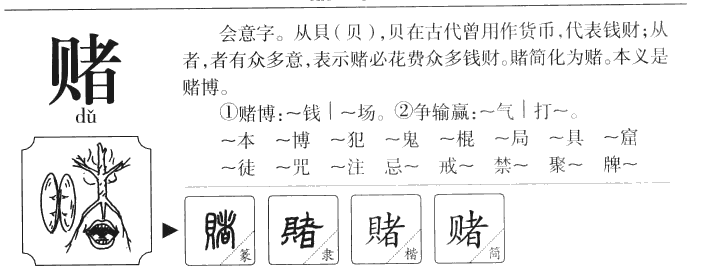 赌
dǔ
会意字。从貝(贝),贝在古代曾用作货币,代表钱财;从
者,者有众多意,表示赌必花费众多钱财。賭简化为赌。本义是
赌博。
①赌博:~钱|~场。②争输赢:~气|打~。
~本 ~博 ~犯 ~鬼 ~棍 ~局 ~具 ~窟
~徒 ~咒 ~注 忌~ 戒~ 禁~ 聚~ 牌~
賭 篆 賭 隶 賭 楷 赌 简